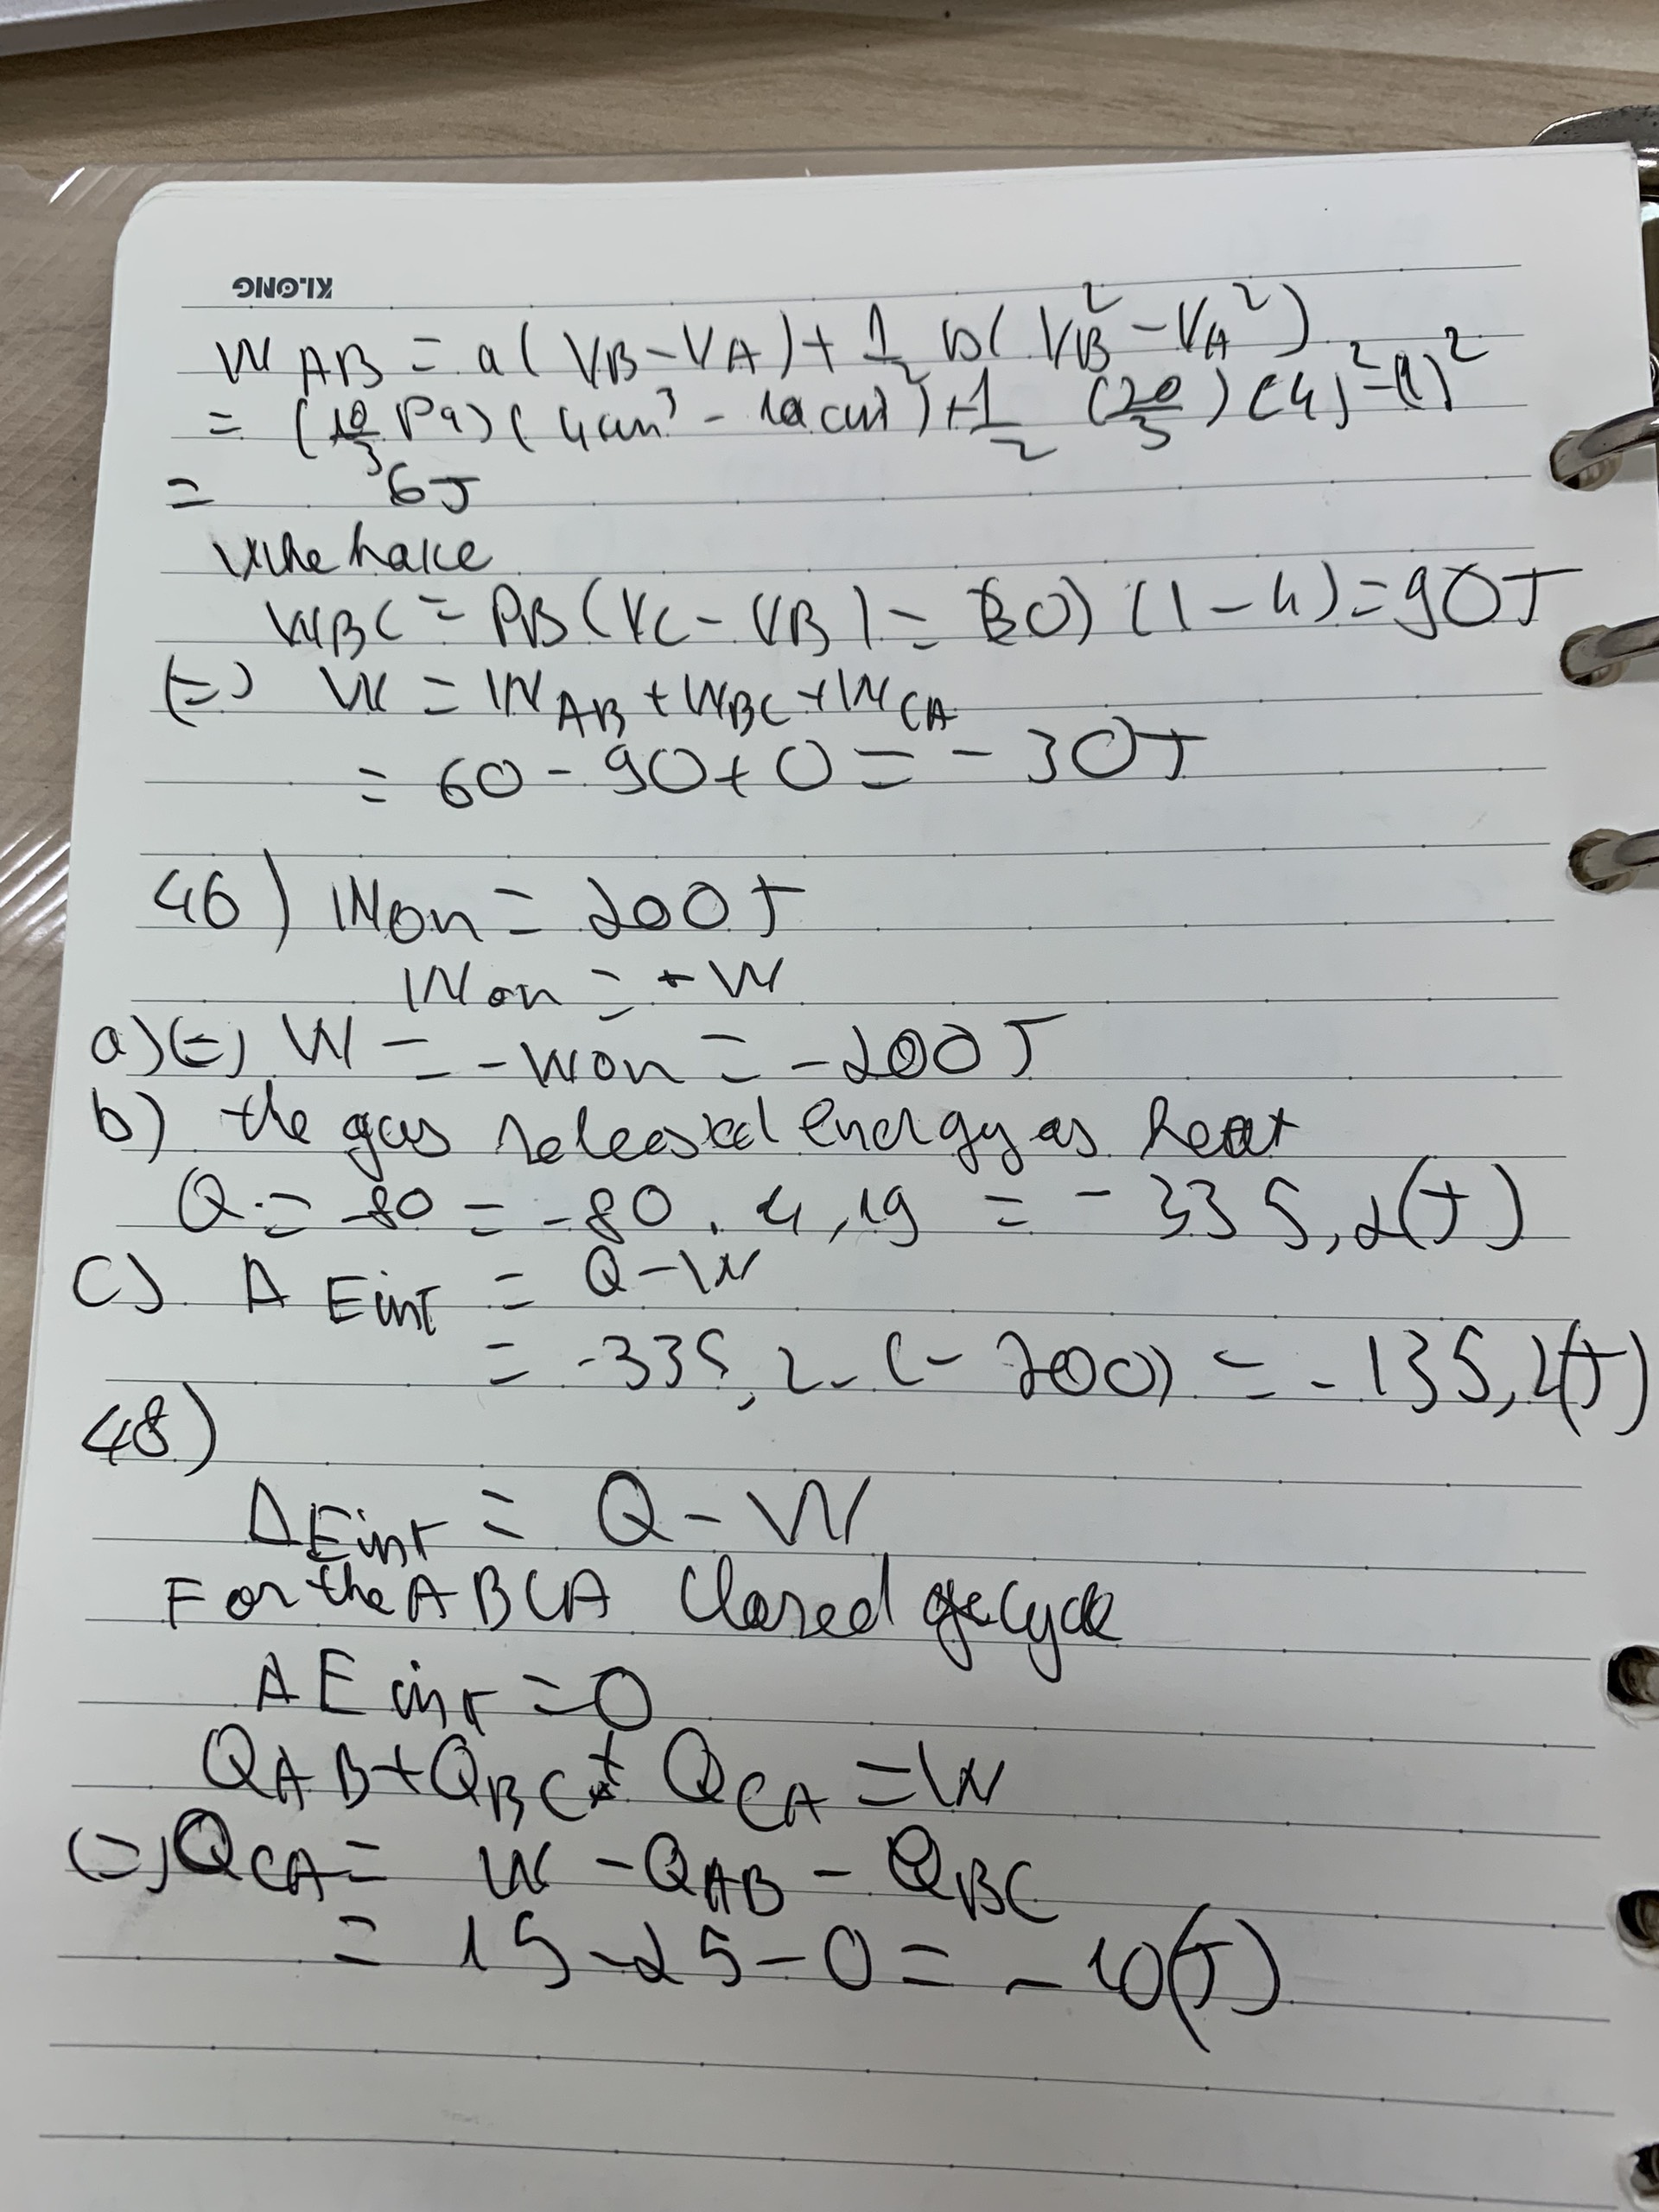 KLONG
W AB = a( VB-VA)+ 1/2 b( VB² - VA²)
= (10/3 Pa)( 4cm³ - 1 cm³)+ 1/2 (20/3) (4)²-(1)²
= 6J
We have
WBC = PB(VC-VB) = 30) (1-4)=90J
(=) W = W AB + WBC + W CA
= 60 - 90+0 = - 30J
46) Won = 200J
Won = - W
a)(=) W = -Won = -200J
b) the gas released energy as heat
Q = -80 = -80 . 4,19 = - 335,2(J)
C) Δ Eint = Q-W
= -335,2-(-200) = -135,2(J)
48)
ΔEint = Q - W
For the ABCA Closed cycle
ΔE int = 0
QAB+QBC+ QCA = W
(=)QCA = W - QAB - QBC
= 15-25-0 = -10(J)